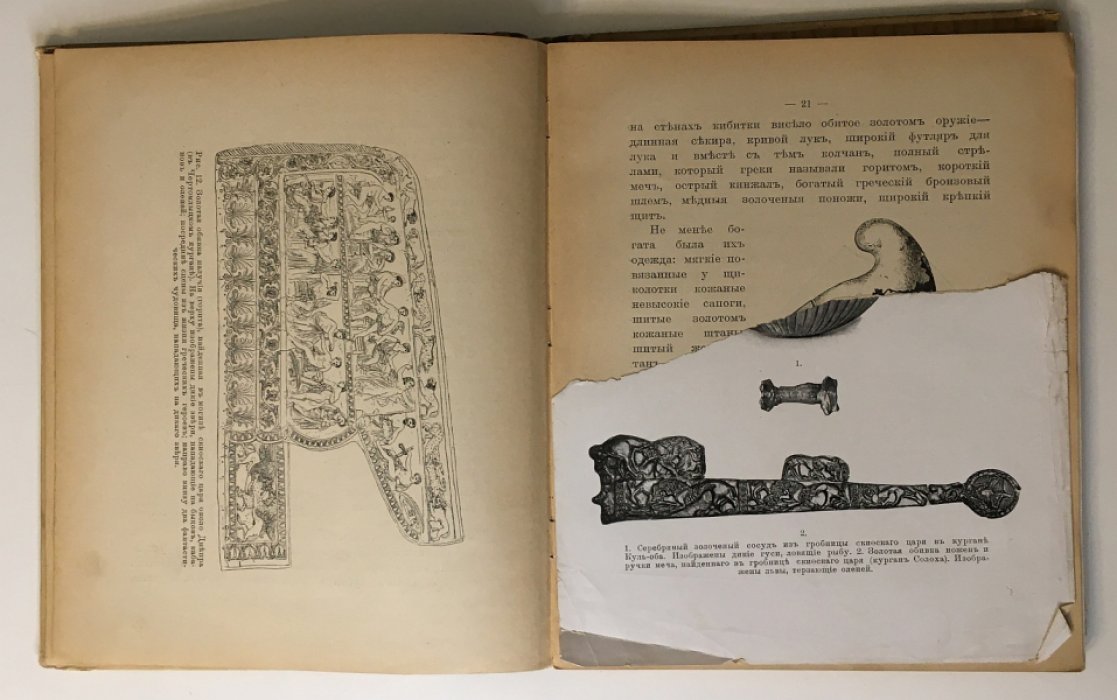 Рис. 12. Золотая обивка налучія (горита), найденная въ могилѣ скиѳскаго царя около Днѣпра
(въ Чертомлыцкомъ курганѣ). На верху изображены дикіе звѣри, нападающіе на быковъ, каба-
новъ и оленей; посрединѣ сцены изъ жизни греческихъ героевъ; направо внизу два фантасти-
ческихъ чудовища, нападающихъ на дикаго звѣря.
— 21 —
на стѣнахъ кибитки висѣло обитое золотомъ оружіе—
длинная сѣкира, кривой лукъ, широкій футляръ для
лука и вмѣстѣ съ тѣмъ колчанъ, полный стрѣ-
лами, который греки называли горитомъ, короткій
мечъ, острый кинжалъ, богатый греческій бронзовый
шлемъ, мѣдныя золоченыя поножи, широкій крѣпкій
щитъ.
Не менѣе бо-
гата была ихъ
одежда: мягкіе по-
вязанные у щи-
колотки кожаные
невысокіе сапоги,
шитые золотомъ
кожаные штаны
шитый
1.
2.
1. Серебряный золоченый сосудъ изъ гробницы скиѳскаго царя въ курганѣ
Куль-оба. Изображены дикіе гуси, ловящіе рыбу. 2. Золотая обивка ноженъ и
ручки меча, найденнаго въ гробницѣ скиѳскаго царя (курганъ Солоха). Изобра-
жены львы, терзающіе оленей.